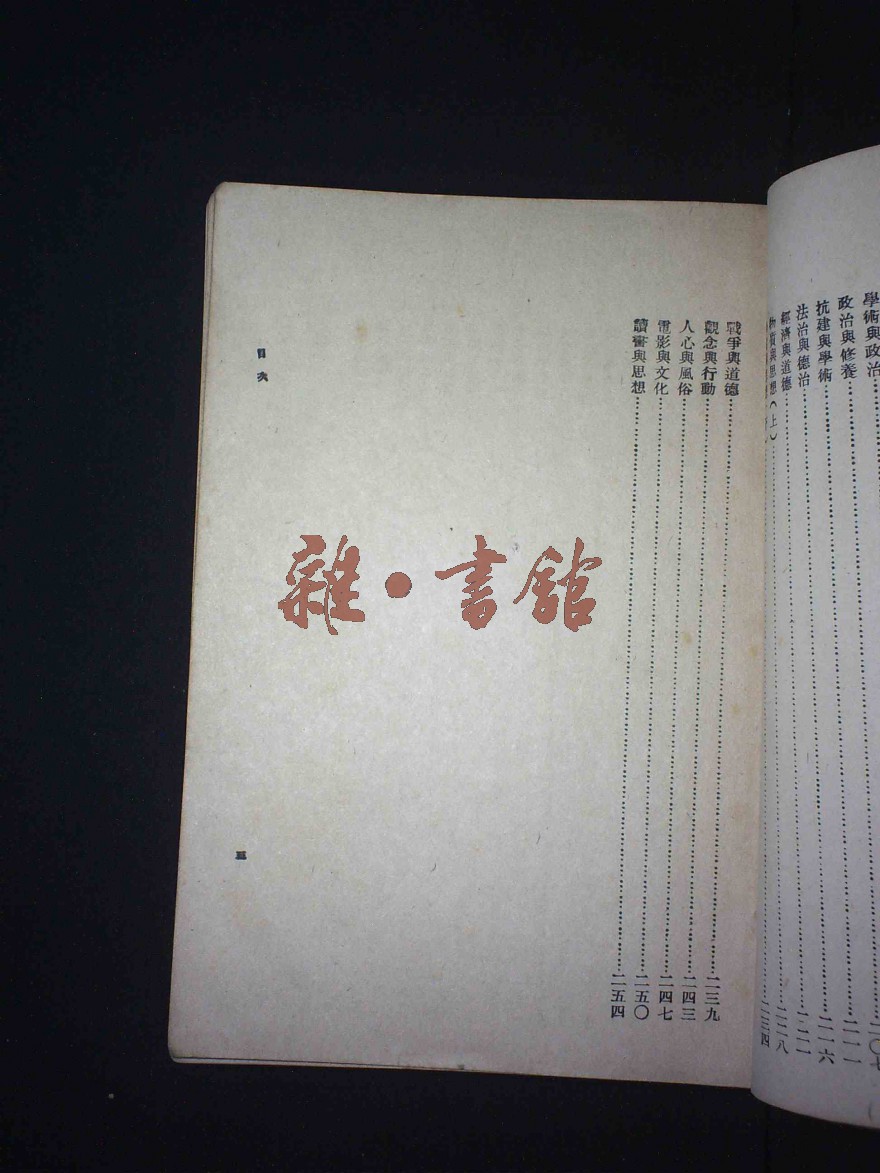 學術與政治……二〇七
政治與修養……二一一
抗建與學術……二一六
法治與德治……二二二
經濟與道德……二二八
物質與思想(上)……二三四
戰爭與道德……二三九
觀念與行動……二四三
人心與風俗……二四七
電影與文化……二五〇
讀書與思想……二五四
目次
三
雜·書館